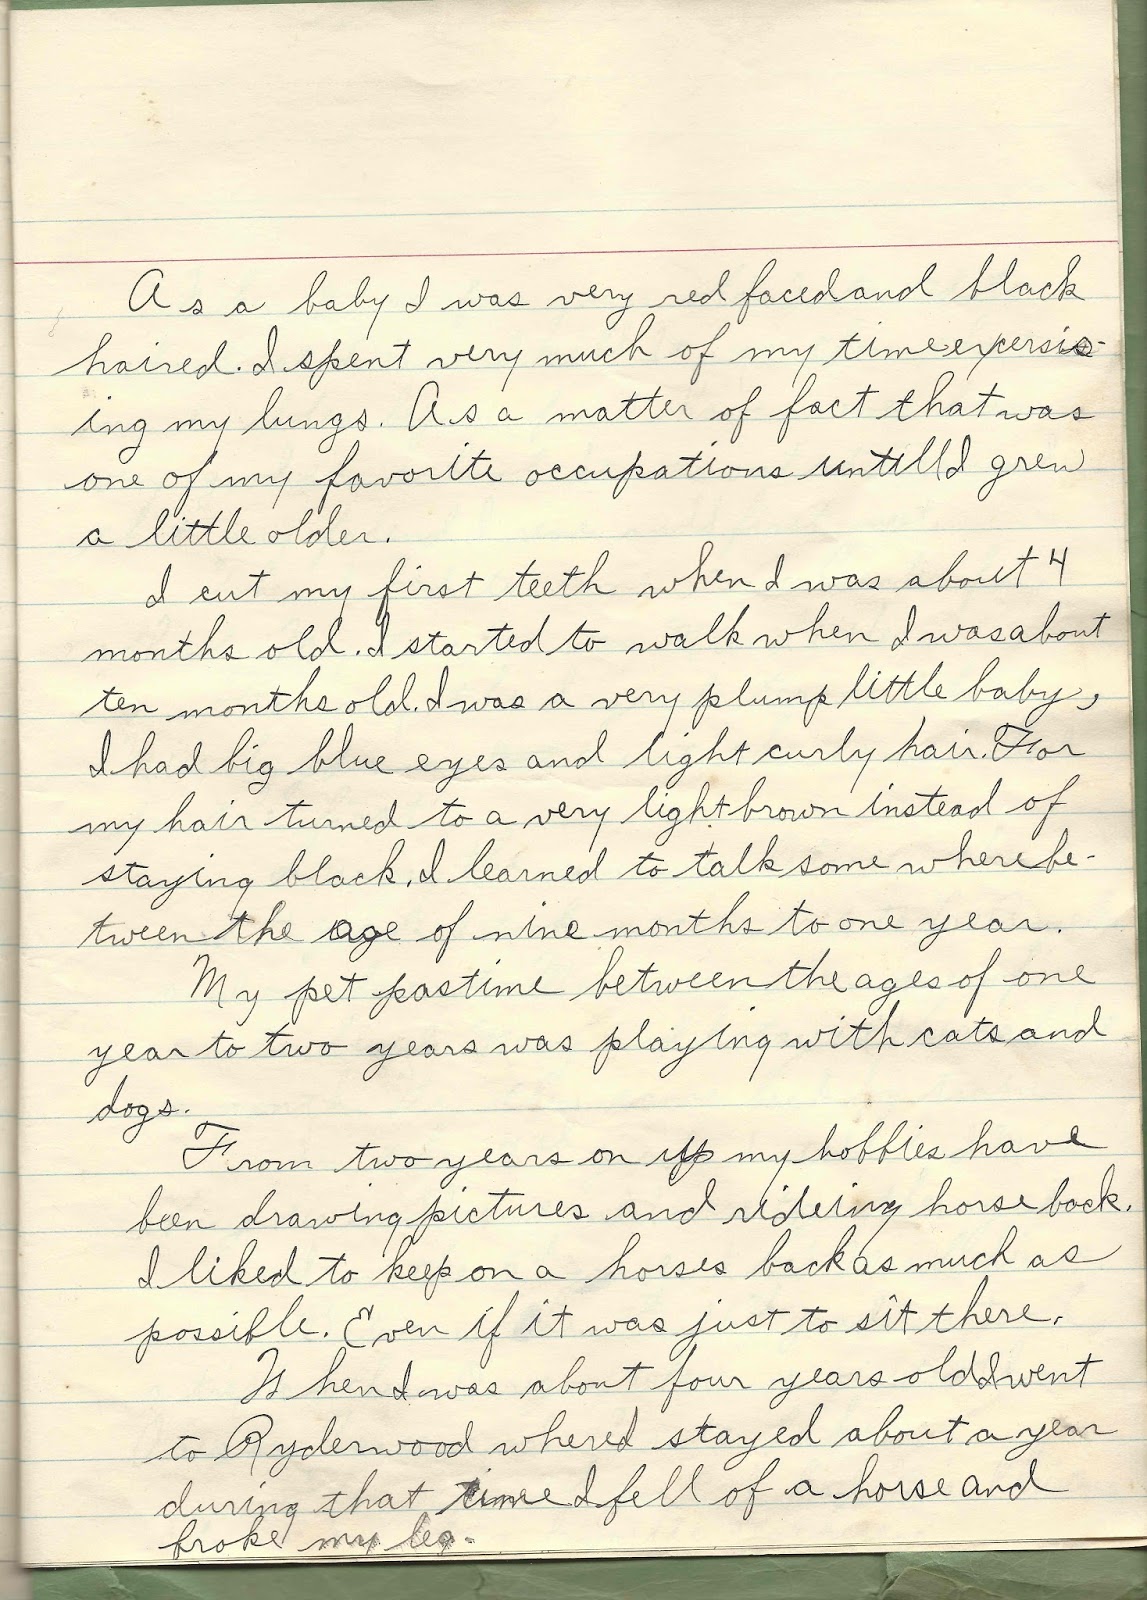 As a baby I was very red faced and black
haired. I spent very much of my time excersis-
ing my lungs. As a matter of fact that was
one of my favorite occupations untill I grew
a little older.
I cut my first teeth when I was about 4
months old. I started to walk when I was about
ten months old. I was a very plump little baby,
I had big blue eyes and light curly hair. For
my hair turned to a very light brown instead of
staying black. I learned to talk some where be-
tween the age of nine months to one year.
My pet pastime between the ages of one
year to two years was playing with cats and
dogs.
From two years on up my hobbies have
been drawing pictures and rideing horse back.
I liked to keep on a horses back as much as
possible. Even if it was just to sit there.
When I was about four years old I went
to Ryderwood where I stayed about a year
during that time I fell of a horse and
broke my leg.